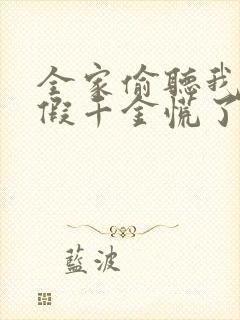 全家偷聽我
假千金慌了
藍波